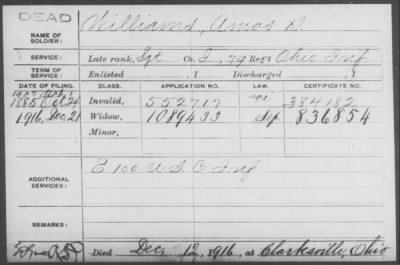 DEAD
NAME OF SOLDIER: Williams, Amos D.
SERVICE: Late rank, Sgt Co. I, 79 Reg't Ohio Inf
TERM OF SERVICE: Enlisted , 1 Discharged , 1
DATE OF FILING. CLASS. APPLICATION NO. LAW. CERTIFICATE NO.
1885 Oct 24 Invalid, 552717 384182
1916, Dec 21 Widow, 1089433 Sep. 836854
Minor,
ADDITIONAL SERVICES: E 100 U S C Inf
REMARKS:
Died Dec. 12, 1916, at Clarksville, Ohio